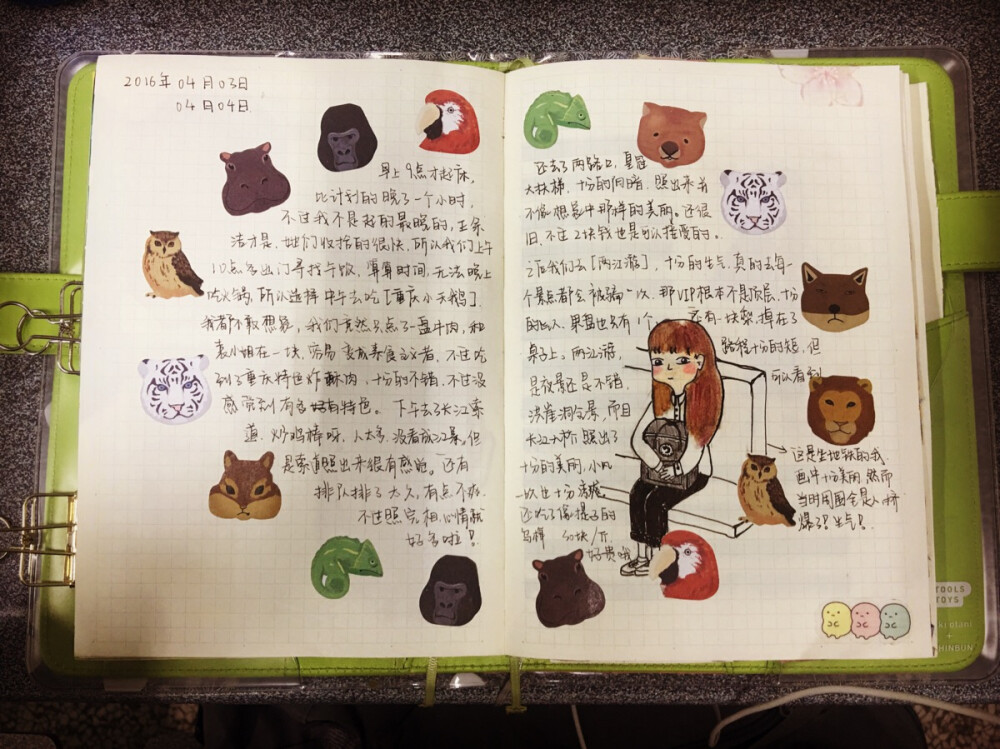 2016年04月03日
04月04日
早上9点才起床,
比计划的晚了一个小时,
不过我不是起的最晚的,王余
洁才是,她们收拾的很快,所以我们上午
10点多出门寻找午饭,算算时间,无法晚上
吃火锅,所以选择中午去吃[重庆小天鹅].
我都不敢想象,我们竟然只点了一盘牛肉,和
袁小姐在一块,容易变成素食主义者,不过吃
到了重庆特色炸酥肉,十分的不错,不过没
感觉到有多好自特色。下午去了长江索
道,炒鸡棒呀,人太多,没看成江景。但
是索道照出来很有感觉。还有
排队排了太久,有点不爽.
不过照完相,心情就
好多啦!
还去了两路口,皇冠
大扶梯,十分的阴暗,照出来并
不像想象中那样的美丽。还很
旧,不过2块钱也是可以接受的。
之后我们去[两江游],十分的生气,真的去每一
个景点都会被骗一次,那VIP根本不是顶层,十分
的坑人,果盘也只有1个,还有一块梨,掉在了
桌子上。两江游,路程十分的短,但
是夜景还是不错,可以看到
洪崖洞全景,而且
长江大桥照出了
十分的美丽,小
以也十分满意。
还吃了像提子的
乌梅 50块/斤.
好贵哦
这是坐地铁的我
画中十分美丽,然而
当时周围全是人挤
爆了!生气!
TOOLS
TOYS
ki otani
+
SHINBUN